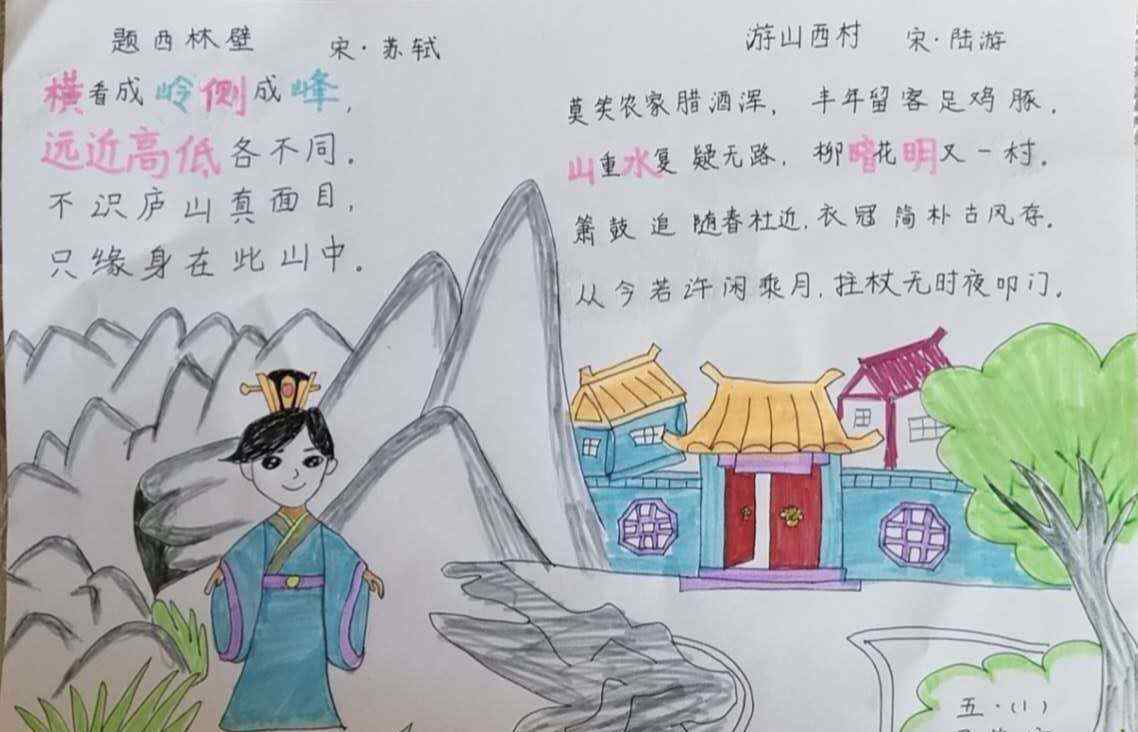 题西林壁
宋·苏轼
横看成岭侧成峰，
远近高低各不同。
不识庐山真面目，
只缘身在此山中。
游山西村 宋·陆游
莫笑农家腊酒浑，丰年留客足鸡豚。
山重水复疑无路，柳暗花明又一村。
箫鼓追随春社近，衣冠简朴古风存。
从今若许闲乘月，拄杖无时夜叩门。
五·(1)